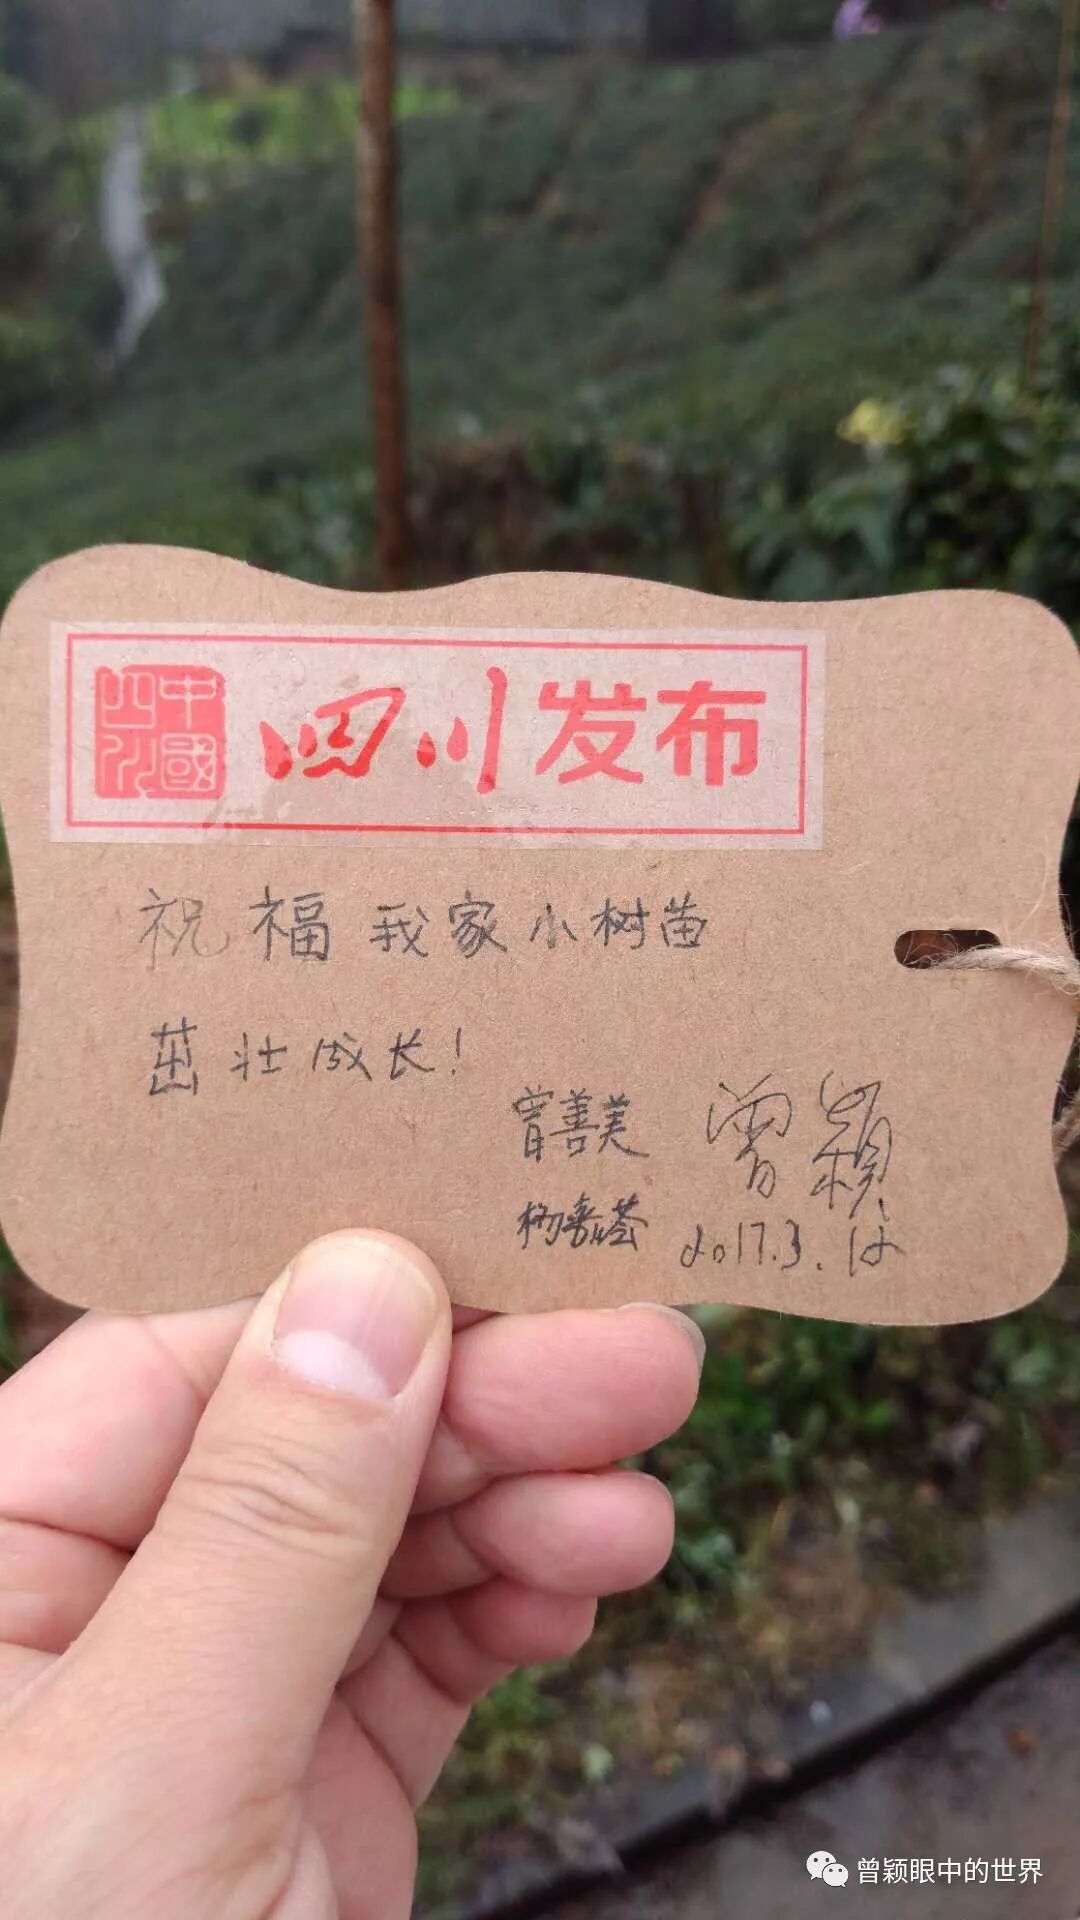 中國四川
四川发布
祝福我家小树苗
茁壮成长!
曾善美 曾颖
杨嘉荟 2017.3.12
曾颖眼中的世界